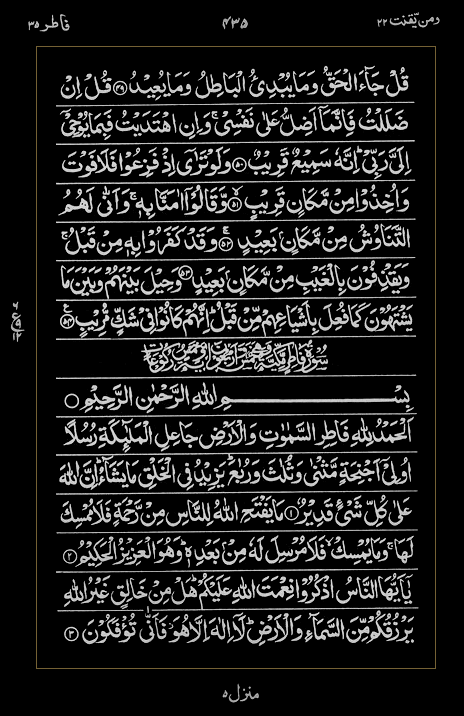 ومن يقنت ٢٢
٤٣٥
فاطر ٣٥
قُلْ جَآءَ الْحَقُّ وَمَا يُبْدِئُ الْبَاطِلُ وَمَا يُعِيْدُ ۝٤٩ قُلْ اِنْ
ضَلَلْتُ فَاِنَّمَاۤ اَضِلُّ عَلٰى نَفْسِيْ ۚ وَاِنِ اهْتَدَيْتُ فَبِمَا يُوْحِيْۤ
اِلَيَّ رَبِّيْ ؕ اِنَّهٗ سَمِيْعٌ قَرِيْبٌ ۝٥٠ وَلَوْ تَرٰۤى اِذْ فَزِعُوْا فَلَا فَوْتَ
وَاُخِذُوْا مِنْ مَّكَانٍ قَرِيْبٍ ۝٥١ وَّقَالُوْۤا اٰمَنَّا بِهٖ ۚ وَاَنّٰى لَهُمُ
التَّنَاوُشُ مِنْ مَّكَانٍۭ بَعِيْدٍ ۝٥٢ وَقَدْ كَفَرُوْا بِهٖ مِنْ قَبْلُ ۚ
وَيَقْذِفُوْنَ بِالْغَيْبِ مِنْ مَّكَانٍۭ بَعِيْدٍ ۝٥٣ وَحِيْلَ بَيْنَهُمْ وَبَيْنَ مَا
يَشْتَهُوْنَ كَمَا فُعِلَ بِاَشْيَاعِهِمْ مِّنْ قَبْلُ ؕ اِنَّهُمْ كَانُوْا فِيْ شَكٍّ مُّرِيْبٍ ۝٥٤
٦
ع
٩
١٢
سُوْرَةُ فَاطِرٍ مَّكِّيَّةٌ
بِسْمِ اللهِ الرَّحْمٰنِ الرَّحِيْمِ ۝
اَلْحَمْدُ لِلهِ فَاطِرِ السَّمٰوٰتِ وَالْاَرْضِ جَاعِلِ الْمَلٰٓئِكَةِ رُسُلًا
اُولِيْۤ اَجْنِحَةٍ مَّثْنٰى وَثُلٰثَ وَرُبٰعَ ؕ يَزِيْدُ فِي الْخَلْقِ مَا يَشَآءُ ؕ اِنَّ اللهَ
عَلٰى كُلِّ شَيْءٍ قَدِيْرٌ ۝١ مَا يَفْتَحِ اللهُ لِلنَّاسِ مِنْ رَّحْمَةٍ فَلَا مُمْسِكَ
لَهَا ۚ وَمَا يُمْسِكْ ۙ فَلَا مُرْسِلَ لَهٗ مِنْۢ بَعْدِهٖ ؕ وَهُوَ الْعَزِيْزُ الْحَكِيْمُ ۝٢
يٰۤاَيُّهَا النَّاسُ اذْكُرُوْا نِعْمَتَ اللهِ عَلَيْكُمْ ؕ هَلْ مِنْ خَالِقٍ غَيْرُ اللهِ
يَرْزُقُكُمْ مِّنَ السَّمَآءِ وَالْاَرْضِ ؕ لَاۤ اِلٰهَ اِلَّا هُوَ ۖ فَاَنّٰى تُؤْفَكُوْنَ ۝٣
منزل ٥